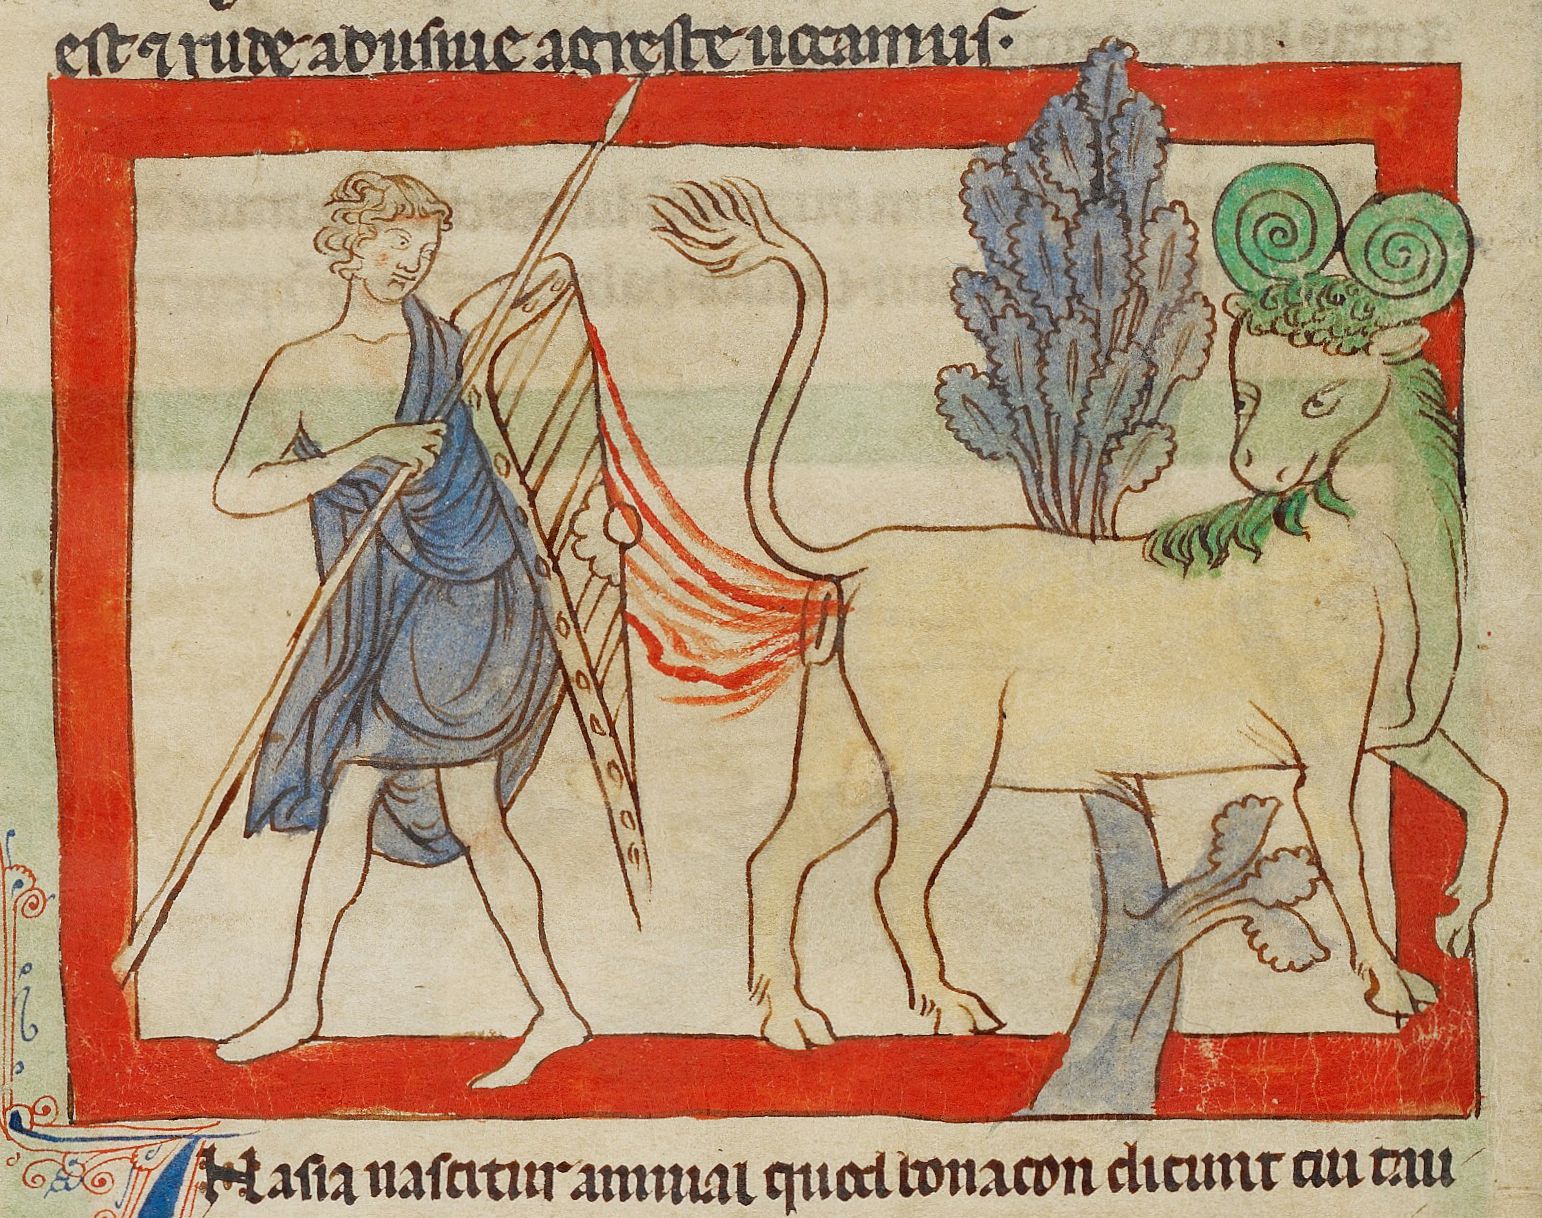 est ⁊ rude abusiue agreste uocamus.
IN asia nascitur animal quod bonacon dicunt cui tau